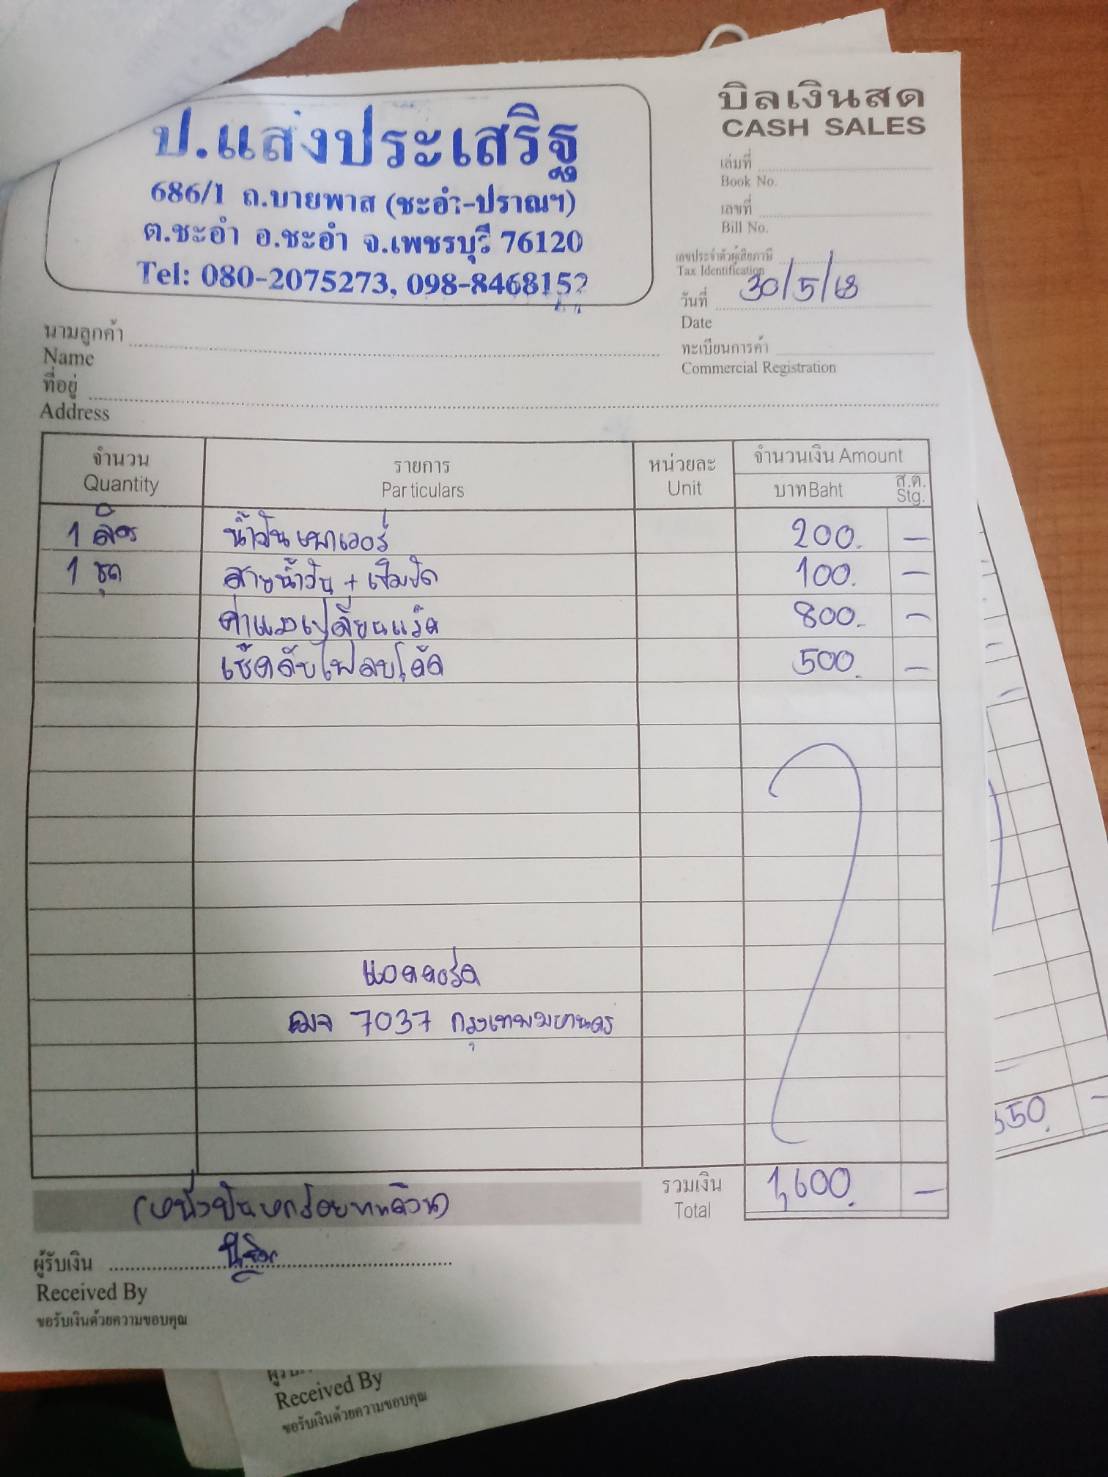 ป.แสงประเสริฐ
686/1 ถ.บายพาส (ชะอำ-ปราณฯ)
ต.ชะอำ อ.ชะอำ จ.เพชรบุรี 76120
Tel: 080-2075273, 098-8468152
บิลเงินสด
CASH SALES
เล่มที่
Book No.
เลขที่
Bill No.
เลขประจำตัวผู้เสียภาษี
Tax Identification
วันที่ 30/5/68
Date
ทะเบียนการค้า
Commercial Registration
นามลูกค้า
Name
ที่อยู่
Address
จำนวน รายการ หน่วยละ จำนวนเงิน Amount
Quantity Particulars Unit บาท Baht ส.ต. Stg.
1 ลิตร น้ำมันเพาเวอร์ 200. —
1 ชุด สายน้ำมัน + เข็มขัด 100. —
ค่าแรงเปลี่ยนแร็ค 800. —
เช็คดับไฟลบโค้ด 500. —
แอคคอร์ด
ฌจ 7037 กรุงเทพมหานคร
รวมเงิน 1,600. —
Total
(หนึ่งพันหกร้อยบาทถ้วน)
ผู้รับเงิน
Received By
ขอรับเงินด้วยความขอบคุณ
550. —
Received By
ขอรับเงินด้วยความขอบคุณ